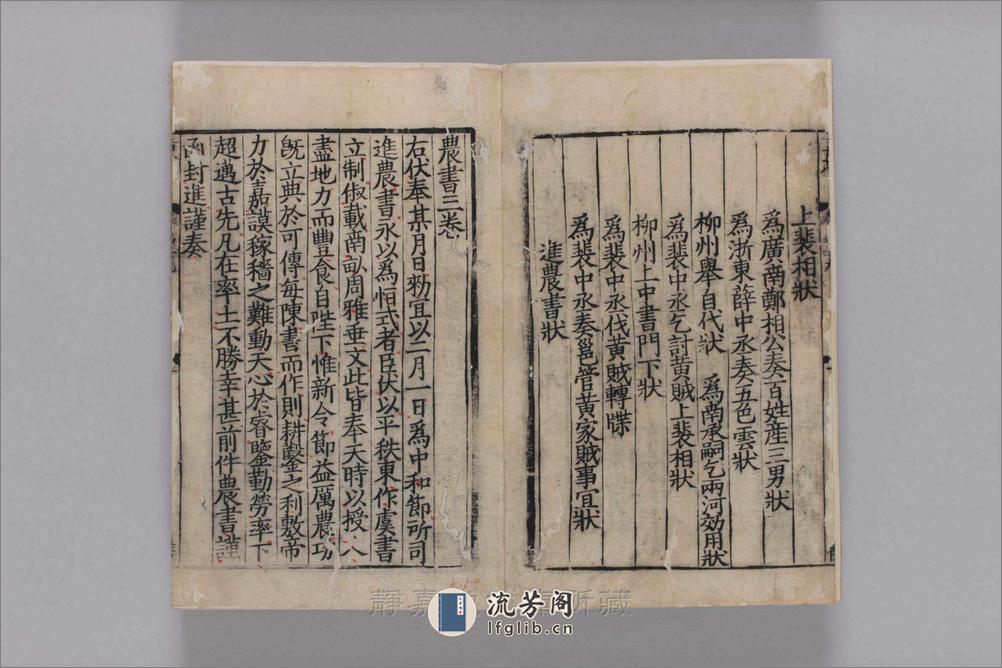 上裴相狀
爲廣南鄭相公奏百姓產三男狀
爲浙東薛中丞奏五色雲狀
柳州舉自代狀 爲南承嗣乞兩河効用狀
爲裴中丞乞討黃賊上裴相狀
柳州上中書門下狀
爲裴中丞伐黃賊轉牒
爲裴中丞奏邕管黃家賊事宜狀
進農書狀
農書三卷
右伏奉某月日勑宜以二月一日爲中和節所司
進農書永以爲恒式者臣伏以平秩東作虞書
立制俶載南畝周雅垂文此皆奉天時以授人
盡地力而豐食自陛下惟新令節益厲農功
旣立典於可傳每陳書而作則耕鑿之利敷帝
力於嘉謨稼穡之難動天心於睿鑒勤勞率下
超邁古先凡在率土不勝幸甚前件農書謹
函封進謹奏
靜嘉 所藏
流芳阁
lfglib.cn